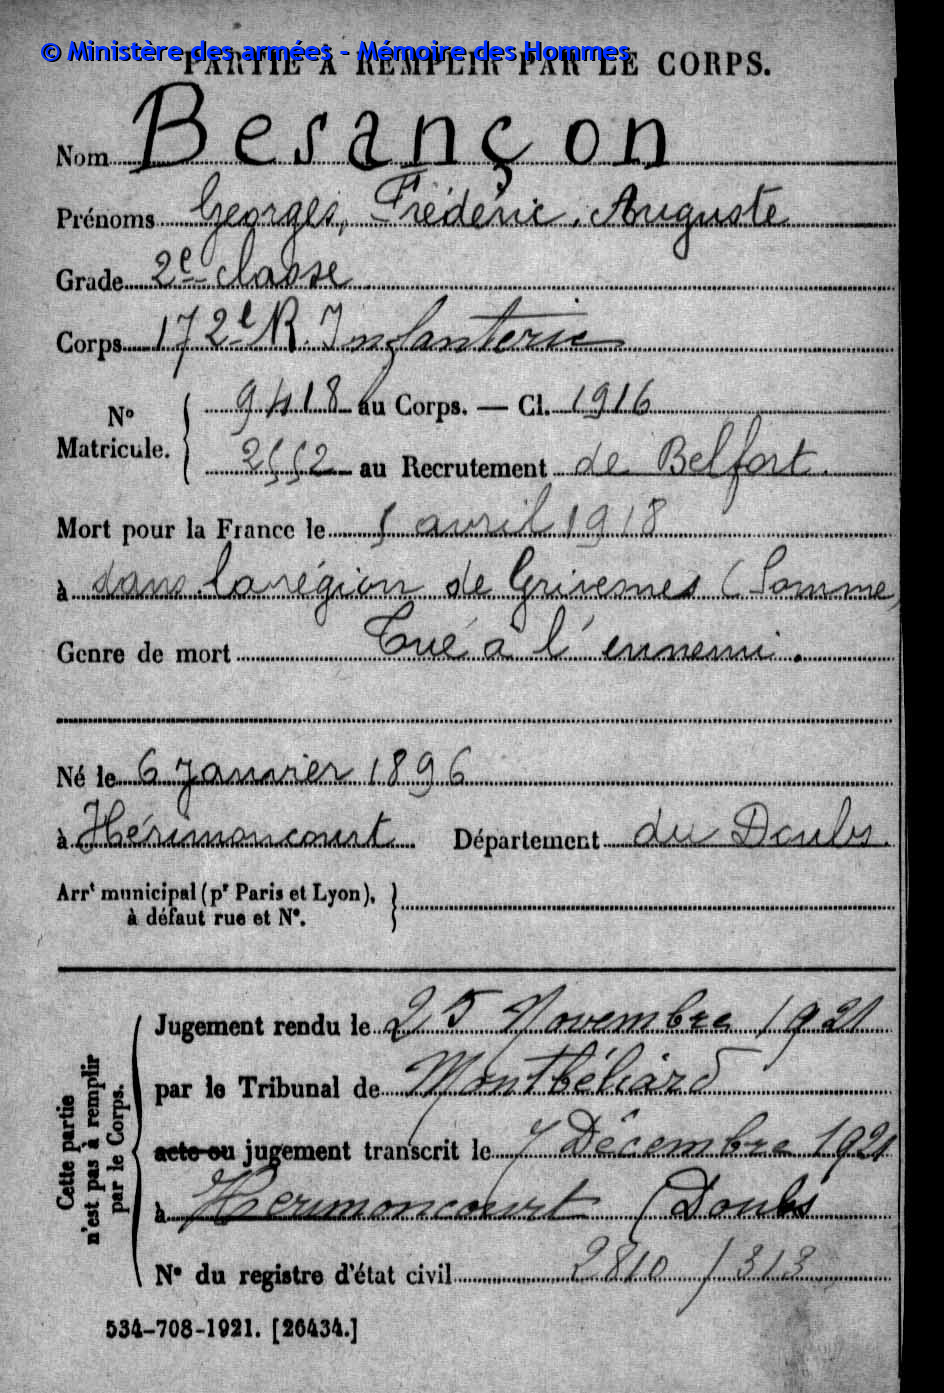 © Ministère des armées - Mémoire des Hommes
PARTIE À REMPLIR PAR LE CORPS.
Nom Besançon
Prénoms Georges, Frédéric, Auguste
Grade 2e classe
Corps 172e R. Infanterie
N° Matricule. 9418 au Corps. — Cl. 1916
2552 au Recrutement de Belfort.
Mort pour la France le 5 avril 1918
à dans la région de Grivesnes (Somme)
Genre de mort Tué à l'ennemi.
Né le 6 Janvier 1896
à Hérimoncourt Département du Doubs.
Arrt municipal (pr Paris et Lyon),
à défaut rue et N°.
Cette partie
n'est pas à remplir
par le Corps.
Jugement rendu le 25 Novembre 1921
par le Tribunal de Montbéliard
acte ou jugement transcrit le 7 Décembre 1921
à Hérimoncourt (Doubs
N° du registre d'état civil 2810 / 313
534-708-1921. [26434.]